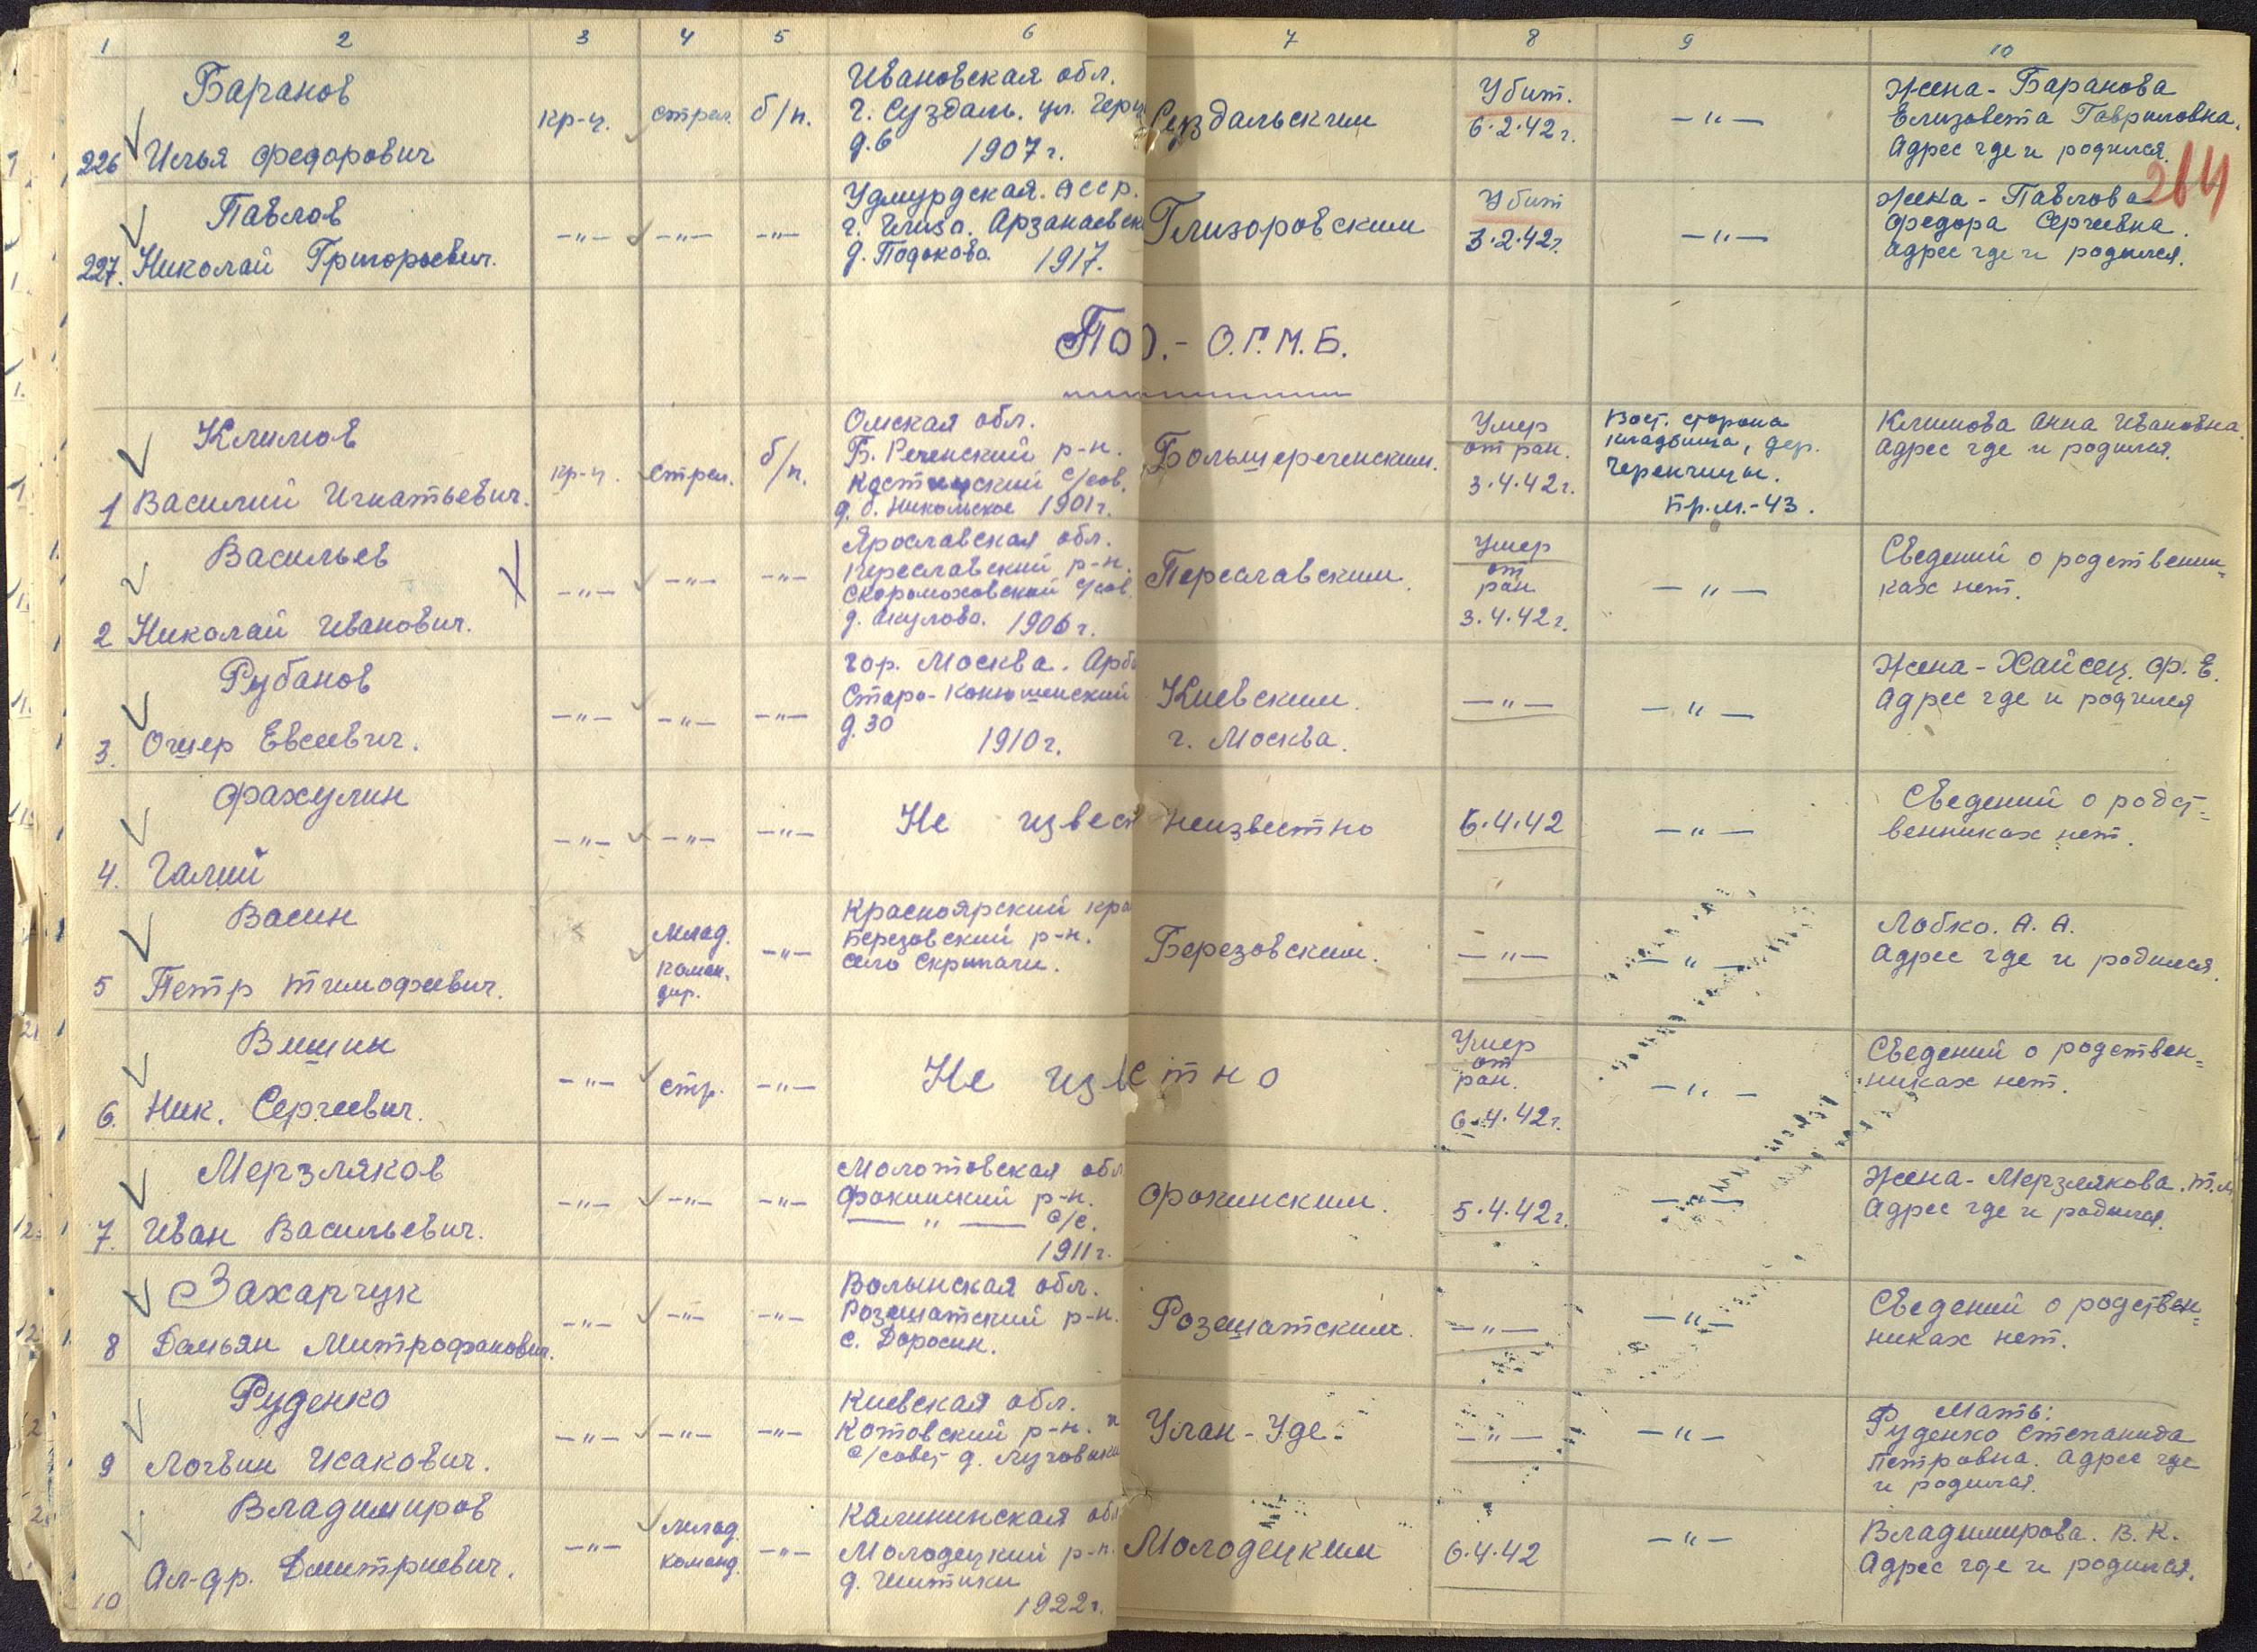 1 2 3 4 5 6 7 8 9 10
Баранов
226 Илья Федорович
кр-ц. стрел. б/п.
Ивановская обл.
г. Суздаль. ул.
д.6 1907 г.
Суздальским
Убит.
6.2.42 г.
— " —
Жена - Баранова
Елизовета Гавриловна.
Адрес где и родился.
264
Павлов
227. Николай Григорьевич.
— " — — " — — " —
Удмурдская. АССР.
д. Подоково. 1917.
Глизоровским
Убит
3.2.42г.
— " —
Жена - Павлова
Федора Сергеевна.
Адрес где и родился.
По .- О.Г.М.Б.
Климов
1 Василий Игнатьевич.
кр-ц. стрел. б/п.
Омская обл.
Б. Реченский р-н.
с/сов.
Никольское 1901г.
Большереченским.
Умер
от ран.
3.4.42г.
Вост. сторона
кладбища, дер.
Черенчицы.
Пр.м.-43.
Климова Анна Ивановна.
Адрес где и родился.
Васильев
2 Николай Иванович.
— " — — " — — " —
Ярославская обл.
Переславский р-н.
Скоромоховский с/сов.
д. Акулово. 1906 г.
Переславским.
Умер
от
ран
3.4.42 г.
— " —
Сведений о родственни=
ках нет.
Рубанов
3. Ошер Евсеевич.
— " — — " — — " —
гор. Москва. Арба
Старо-Конюшенский
д. 30
1910 г.
Киевским.
г. Москва.
— " —
— " —
Жена - Ф. Е.
Адрес где и родился
Фахулин
4. Галий
— " — — " — — " —
Не извест неизвестно
6.4.42
— " —
Сведений о родст=
венниках нет.
Васин
5 Петр Тимофеевич.
Млад.
коман.
дир.
— " —
Красноярский кра
Березовский р-н.
село Скрипачи.
Березовским.
— " —
— " —
Лобко. А. А.
Адрес где и родился.
Вишин
6. Ник. Сергеевич.
— " — стр. — " —
Не извстно
Умер
от
ран.
6.4.42г.
— " —
Сведений о родствен=
никах нет.
Мерзляков
7. Иван Васильевич.
— " — — " — — " —
Молотовская обл
Фокинский р-н.
— " — с/с.
1911 г.
Фокинским.
5.4.42г.
— " —
Жена - Мерзлякова. Т.М
Адрес где и родился.
Захарчук
8 Демьян Митрофанович.
— " — — " — — " —
Волынская обл.
Розешатский р-н.
с. Доросин.
Розешатским.
— " —
— " —
Сведений о родствен=
никах нет.
Руденко
9 Логвин Исакович.
— " — — " — — " —
Киевская обл.
Котовский р-н.
с/совет д.
Улан-Уде.
— " —
— " —
Мать:
Руденко Степанида
Петровна. Адрес где
и родился.
Владимиров
10 Ал-др. Дмитриевич.
— " — млад. — " —
команд.
Калининская обл
Молодецкий р-н.
д. Шитики
1922 г.
Молодецким
6.4.42
— " —
Владимирова. В. К.
Адрес где и родился.